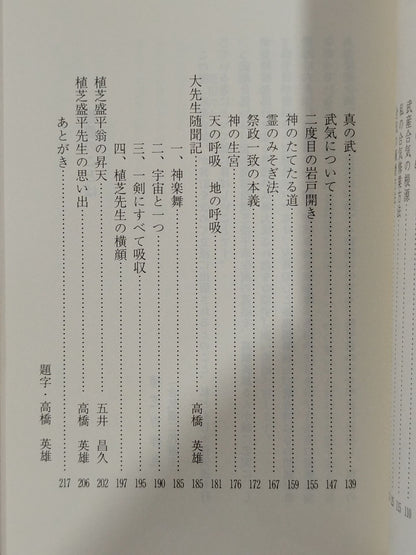 武産合気の根源
私の合気修業方法
真の武……139
武気について……147
二度目の岩戸開き……155
神のたてたる道……159
霊のみそぎ法……167
祭政一致の本義……172
神の生宮……176
天の呼吸 地の呼吸……181
大先生随聞記……高橋 英雄 185
一、神楽舞……185
二、宇宙と一つ……190
三、一剣にすべて吸収……195
四、植芝先生の横顔……197
植芝盛平翁の昇天……五井 昌久 202
植芝盛平先生の思い出……高橋 英雄 206
あとがき……217
題字・高橋 英雄